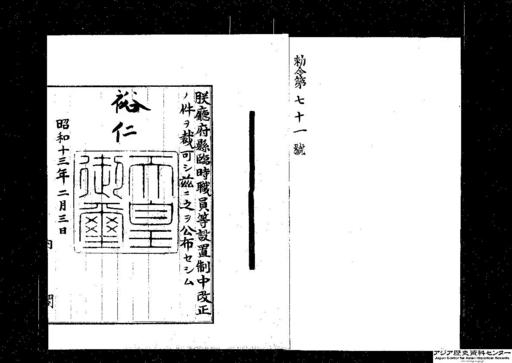 勅令第七十一號
朕廳府縣臨時職員等設置制中改正
ノ件ヲ裁可シ茲ニ之ヲ公布セシム
裕仁
天皇御璽
昭和十三年二月三日
内閣
アジア歴史資料センター
Japan Center for Asian Historical Records